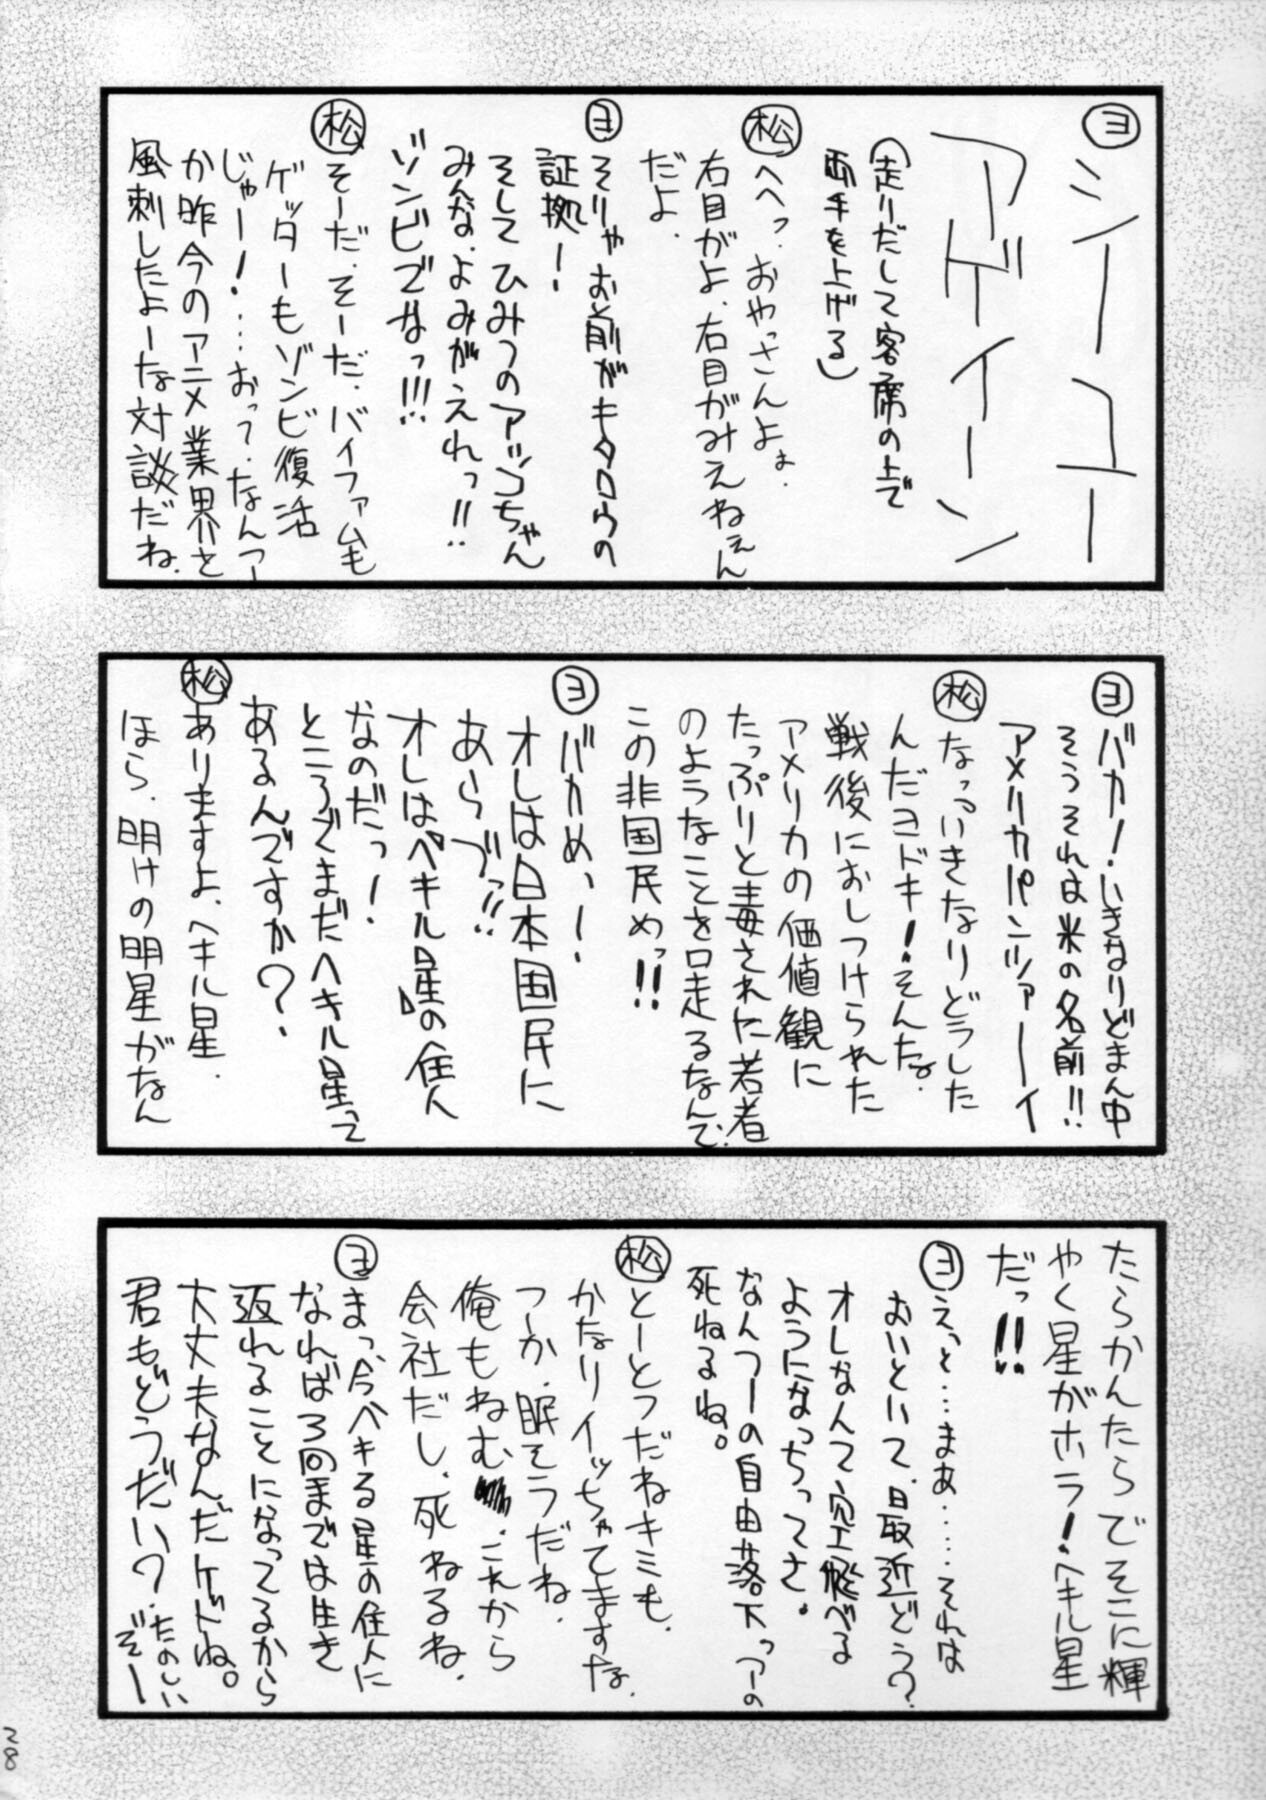 ヨ シーユー
アゲイン
(走りだして客席の上で
両手を上げる)
松 へへっ、おやっさんよぉ.
右目がよ、右目がみえねぇん
だよ.
ヨ そりゃお前がキタロウの
証拠!
そして ひみつのアッコちゃん
みんな、よみがえれっ!!
ゾンビでなっ!!!
松 そーだ、そーだ、バイファムも
ゲッターもゾンビ復活
じゃー!…おって、なんつー
か昨今のアニメ業界を
風刺したよーな対談だね.
ヨ バカ!いきなりどまん中
そうそれは米の名前!!
アメリカパンツァーイ
松 なっいきなりどうした
んだヨドキ!そんな.
戦後におしつけられた
アメリカの価値観に
たっぷりと毒された若者
のようなことを口走るなんて.
この非国民めっ!!
ヨ バカめっ!
オレは日本国民に
あらづっ!!
オレは「ペキル星」の住人
なのだっ!
ところでまだヘキル星って
あるんですか?.
松 ありますよ、ヘキル星.
ほら、明けの明星がなん
たらかんたらでそこに輝
やく星がホラ!ヘキル星
だっ!!
ヨ えっと…まぁ……それは
おいといて、最近どう?
オレなんて空飛べる
ようになっちってさ。
なんつーの自由落下っつーの
死ねるね。
松 とーとつだねキミも.
かなりイッちゃてますな.
つーか、眠そうだね.
俺もねむ.これから
会社だし、死ねるね.
ヨ まっ今ペキる星の住人に
なれば3回までは生き
返れることになってるから
大丈夫なんだケドね。
君もどうだい?たのしい
ぞー
28